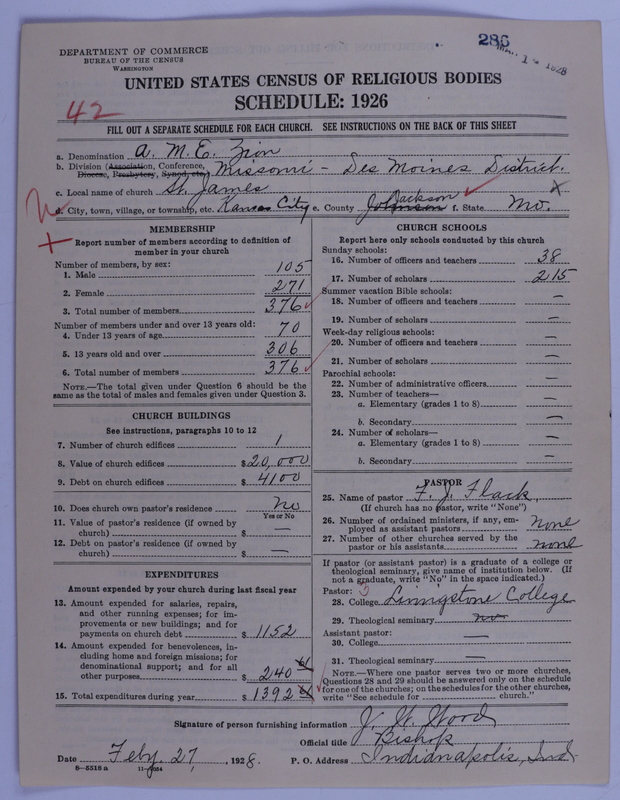 DEPARTMENT OF COMMERCE
BUREAU OF THE CENSUS
WASHINGTON
286
1928
UNITED STATES CENSUS OF RELIGIOUS BODIES
SCHEDULE: 1926
42
FILL OUT A SEPARATE SCHEDULE FOR EACH CHURCH. SEE INSTRUCTIONS ON THE BACK OF THIS SHEET
a. Denomination A. M. E. Zion
b. Division (Association, Conference, Diocese, Presbytery, Synod, etc.) Missouri - Des Moines District.
c. Local name of church St. James
d. City, town, village, or township, etc. Kansas City e. County Johnson Jackson f. State Mo.
MEMBERSHIP
Report number of members according to definition of
member in your church
Number of members, by sex:
1. Male 105
2. Female 271
3. Total number of members 376
Number of members under and over 13 years old:
4. Under 13 years of age 70
5. 13 years old and over 306
6. Total number of members 376
NOTE.—The total given under Question 6 should be the
same as the total of males and females given under Question 3.
CHURCH BUILDINGS
See instructions, paragraphs 10 to 12
7. Number of church edifices 1
8. Value of church edifices $20,000
9. Debt on church edifices $4100
10. Does church own pastor's residence no
Yes or No
11. Value of pastor's residence (if owned by
church) $ —
12. Debt on pastor's residence (if owned by
church) $ —
EXPENDITURES
Amount expended by your church during last fiscal year
13. Amount expended for salaries, repairs,
and other running expenses; for im-
provements or new buildings; and for
payments on church debt $1152
14. Amount expended for benevolences, in-
cluding home and foreign missions; for
denominational support; and for all
other purposes $240 61
15. Total expenditures during year $1392 61
CHURCH SCHOOLS
Report here only schools conducted by this church
Sunday schools:
16. Number of officers and teachers 38
17. Number of scholars 215
Summer vacation Bible schools:
18. Number of officers and teachers —
19. Number of scholars —
Week-day religious schools:
20. Number of officers and teachers —
21. Number of scholars —
Parochial schools:
22. Number of administrative officers —
23. Number of teachers—
a. Elementary (grades 1 to 8) —
b. Secondary —
24. Number of scholars—
a. Elementary (grades 1 to 8) —
b. Secondary —
PASTOR
25. Name of pastor F. J. Flack,
(If church has no pastor, write "None")
26. Number of ordained ministers, if any, em-
ployed as assistant pastors none
27. Number of other churches served by the
pastor or his assistants none
If pastor (or assistant pastor) is a graduate of a college or
theological seminary, give name of institution below. (If
not a graduate, write "No" in the space indicated.)
Pastor:
28. College Livingstone College
29. Theological seminary no
Assistant pastor:
30. College —
31. Theological seminary —
NOTE.—Where one pastor serves two or more churches,
Questions 28 and 29 should be answered only on the schedule
for one of the churches; on the schedules for the other churches,
write "See schedule for church."
Signature of person furnishing information J. W. Wood
Official title Bishop
Date Feby. 27, 1928. P. O. Address Indianapolis, Ind.
8—5518 a 11—9054